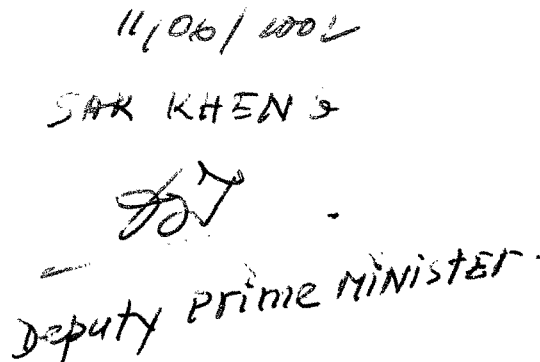 11/06/2002
SAR KHENG
Deputy Prime MINISTER.